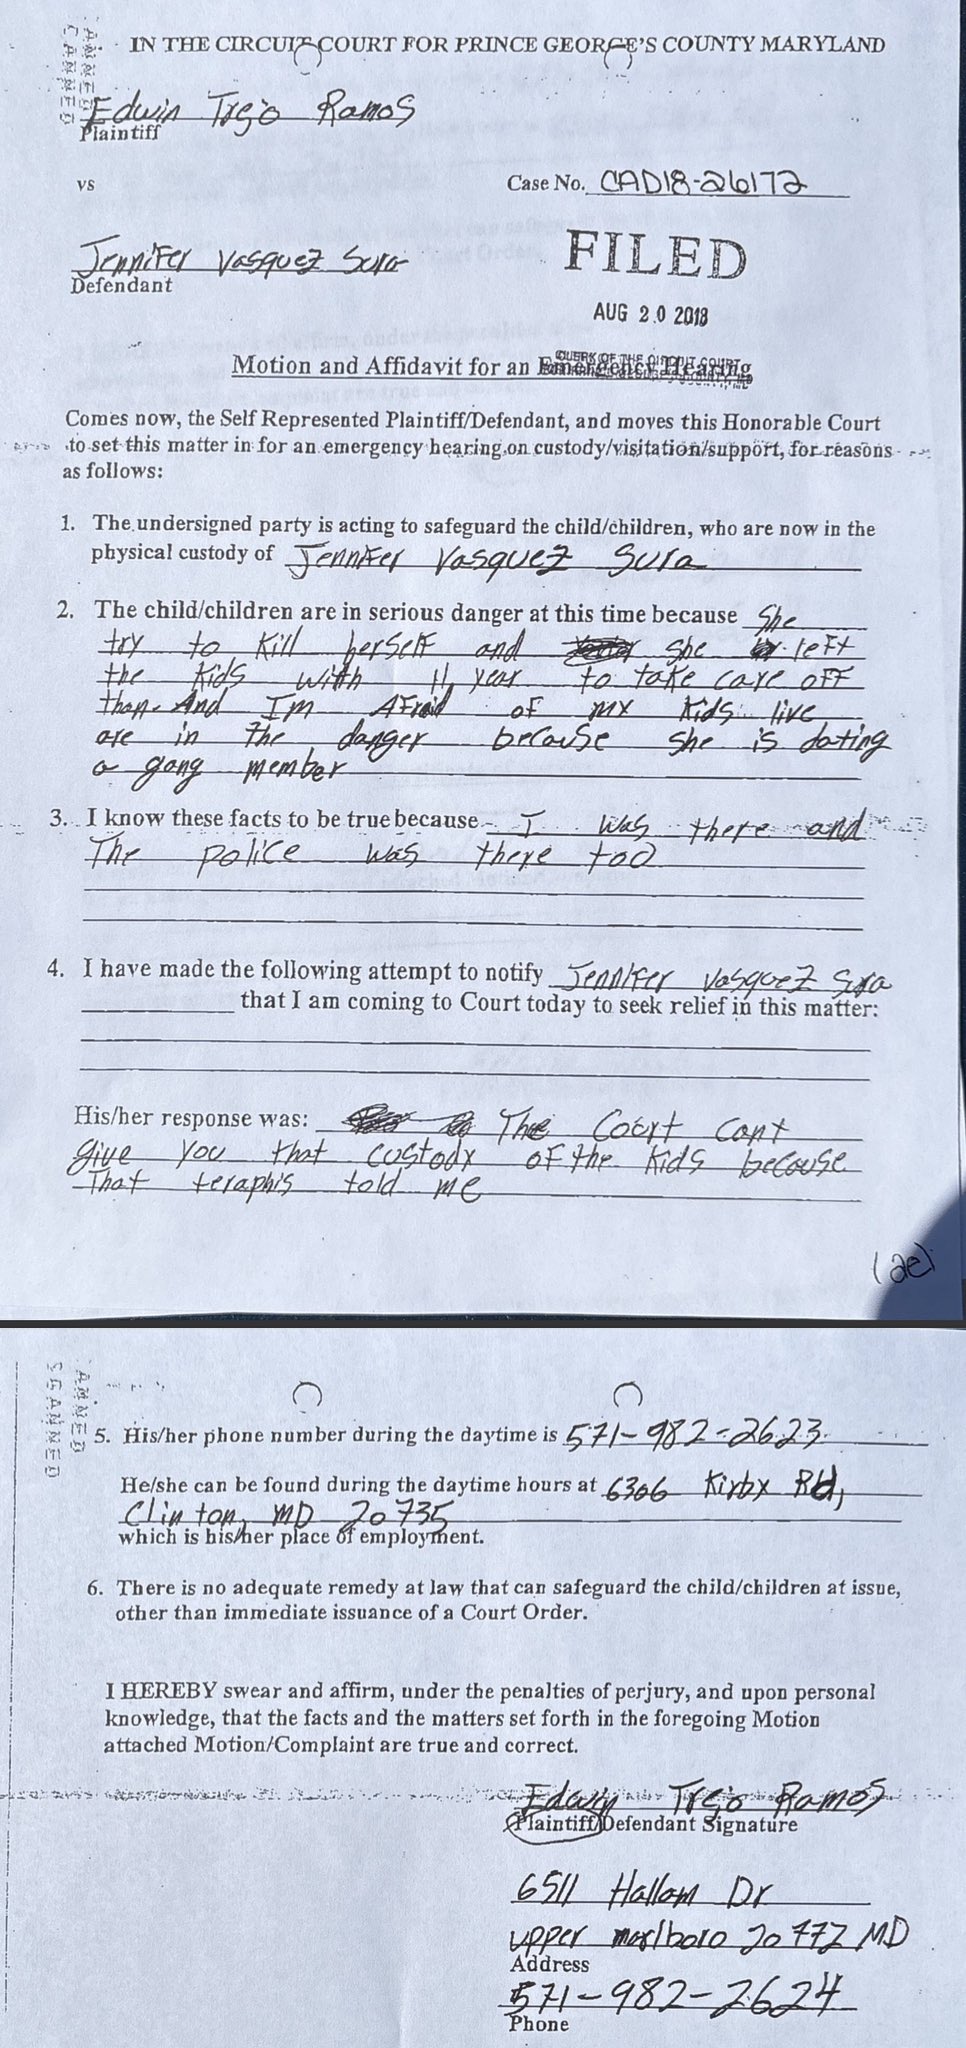 IN THE CIRCUIT COURT FOR PRINCE GEORGE'S COUNTY MARYLAND
SCANNED
Edwin Trejo Ramos
Plaintiff
vs
Case No. CAD18-26172
Jennifer Vasquez Sura
Defendant
FILED
AUG 20 2018
CLERK OF THE CIRCUIT COURT
Motion and Affidavit for an Emergency Hearing
Comes now, the Self Represented Plaintiff/Defendant, and moves this Honorable Court
to set this matter in for an emergency hearing on custody/visitation/support, for reasons
as follows:
1. The undersigned party is acting to safeguard the child/children, who are now in the
physical custody of Jennifer Vasquez Sura
2. The child/children are in serious danger at this time because She
try to kill herself and she left
the kids with 11, year to take care off
than. And I'm Afraid of my kids live
are in the danger because she is dating
a gang member
3. I know these facts to be true because I was there and
The police was there too
4. I have made the following attempt to notify Jennifer Vasquez Sura
that I am coming to Court today to seek relief in this matter:
His/her response was: The Court cant
give you that custody of the kids because
that teraphis told me
(ae)
SCANNED
5. His/her phone number during the daytime is 571-982-2623
He/she can be found during the daytime hours at 6306 Kirby Rd,
Clinton, MD 20735
which is his/her place of employment.
6. There is no adequate remedy at law that can safeguard the child/children at issue,
other than immediate issuance of a Court Order.
I HEREBY swear and affirm, under the penalties of perjury, and upon personal
knowledge, that the facts and the matters set forth in the foregoing Motion
attached Motion/Complaint are true and correct.
Edwin Trejo Ramos
Plaintiff/Defendant Signature
6511 Hallam Dr
upper marlboro 20772 MD
Address
571-982-2624
Phone